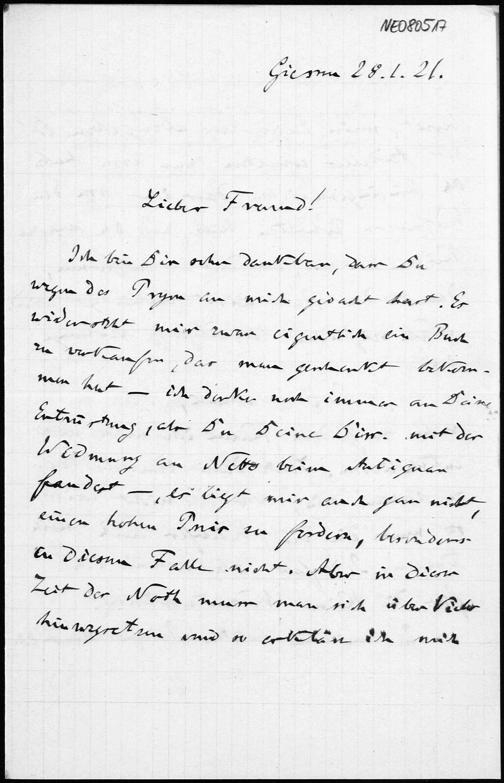 NE0805A
Giessen 28.1.21.
Lieber Freund!
Ich bin Dir sehr dankbar, dass Du
wegen des Prym an mich gedacht hast. Es
widersteht mir zwar eigentlich ein Buch
zu verkaufen, das man geschenkt bekom-
men hat — ich denke noch immer an Deine
Entrüstung, als Du Deine Diss. mit der
Widmung an Netto beim Antiquar
fandest —, es liegt mir auch gar nicht,
einen hohen Preis zu fordern, besonders
in diesem Falle nicht. Aber in dieser
Zeit der Noth muss man sich über Vieles
hinwegsetzen und so erkläre ich mich